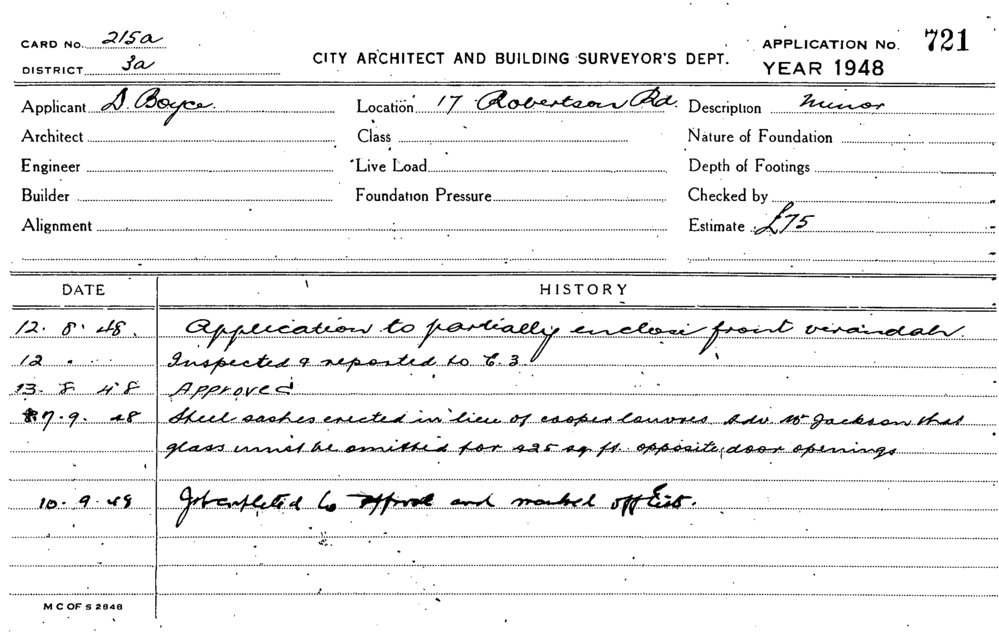 CARD No. 215a
DISTRICT 3a
CITY ARCHITECT AND BUILDING SURVEYOR'S DEPT.
APPLICATION No. 721
YEAR 1948
Applicant D. Boyce. Location 17 Robertson Rd. Description Minor
Architect Class Nature of Foundation
Engineer Live Load Depth of Footings
Builder Foundation Pressure Checked by
Alignment Estimate £75
DATE HISTORY
12. 8. 48. Application to partially enclose front verandah.
12 " " Inspected & reported to C.3.
13. 8 48 Approved
7. 9. 48 Steel sashes erected in lieu of cooper louvres Adv. Mr Jackson that
glass must be omitted for 25 sq ft. opposite door openings
10. 9. 48 Job completed to approval and marked off List.
M C OF S 2848